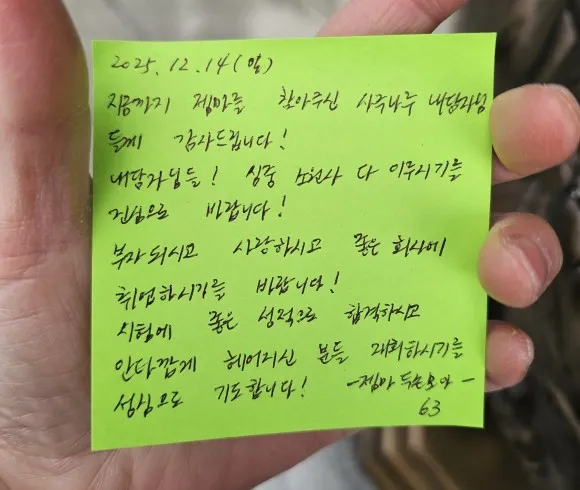 2025. 12. 14 (일)
지금까지 젬마를 찾아주신 사주나루 내담자님
들께 감사드립니다!
내담자님들! 심중 소원사 다 이루시기를
진심으로 바랍니다!
부자 되시고 사랑하시고 좋은 회사에
취업하시기를 바랍니다!
시험에 좋은 성적으로 합격하시고
안타깝게 헤어지신 분들 재회하시기를
성심으로 기도합니다! -젬마 두손모아-
63